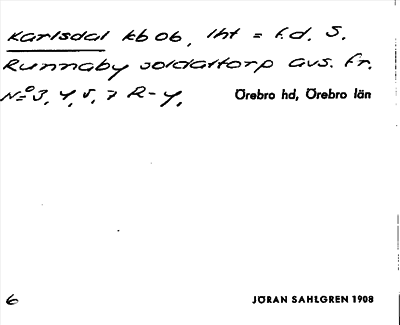 Karlsdal kb ob, lht = f.d. S.
Runnaby soldattorp avs. fr.
No 3, 4, 5, 7 R-y,
Örebro hd, Örebro län
6
JÖRAN SAHLGREN 1908